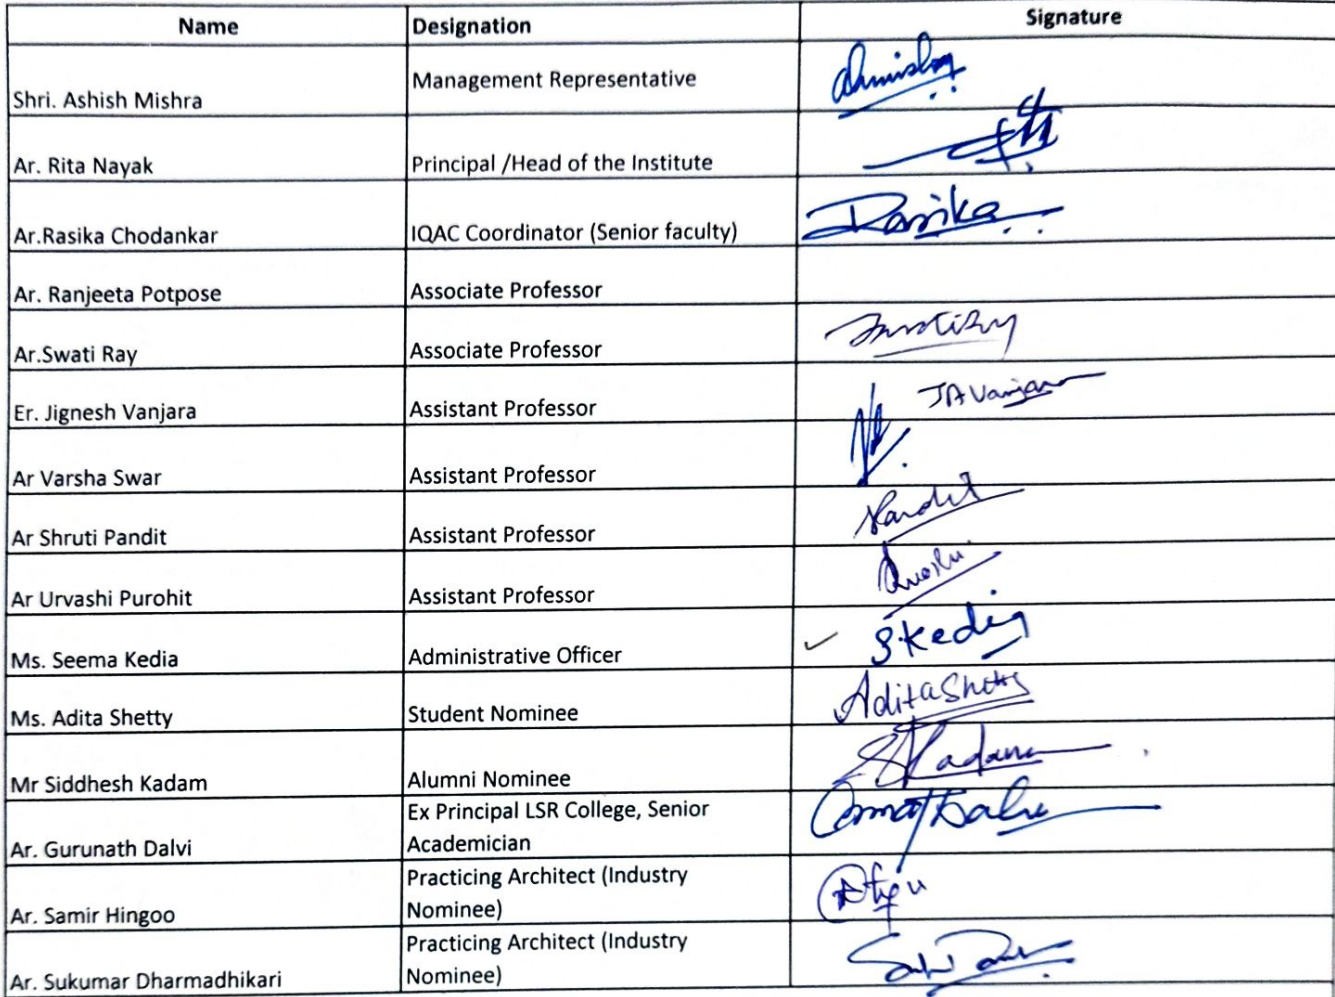 Name Designation Signature
Shri. Ashish Mishra Management Representative
Ar. Rita Nayak Principal /Head of the Institute
Ar.Rasika Chodankar IQAC Coordinator (Senior faculty) Rasika
Ar. Ranjeeta Potpose Associate Professor
Ar.Swati Ray Associate Professor
Er. Jignesh Vanjara Assistant Professor JAVanjara
Ar Varsha Swar Assistant Professor
Ar Shruti Pandit Assistant Professor
Ar Urvashi Purohit Assistant Professor
Ms. Seema Kedia Administrative Officer ✓ S.Kedia
Ms. Adita Shetty Student Nominee Adita Shetty
Mr Siddhesh Kadam Alumni Nominee SKadam
Ar. Gurunath Dalvi Ex Principal LSR College, Senior
Academician
Ar. Samir Hingoo Practicing Architect (Industry
Nominee)
Ar. Sukumar Dharmadhikari Practicing Architect (Industry
Nominee)